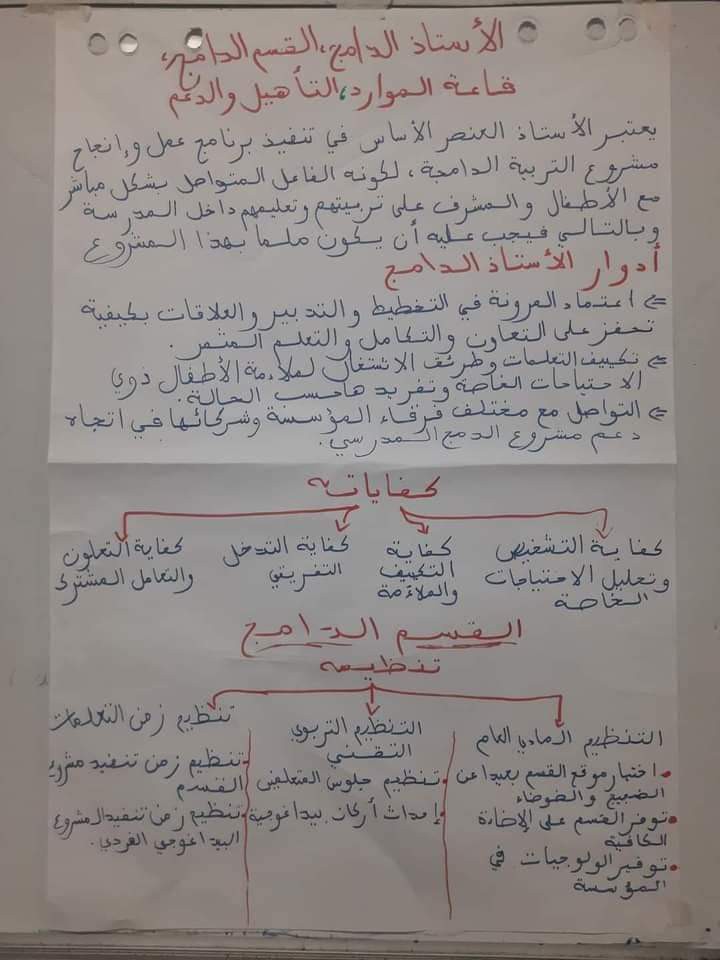 الأستاذ الدامج، القسم الدامج،
قاعة الموارد، التأهيل والدعم
يعتبر الأستاذ العنصر الأساس في تنفيذ برنامج عمل وإنجاح
مشروع التربية الدامجة، لكونه الفاعل المتواصل بشكل مباشر
مع الأطفال والمشرف على تربيتهم وتعليمهم داخل المدرسة
وبالتالي فيجب عليه أن يكون ملما بهذا المشروع
أدوار الأستاذ الدامج
⇐ اعتماد المرونة في التخطيط والتدبير والعلاقات بكيفية
تحفز على التعاون والتكامل والتعلم المثمر.
⇐ تكييف التعلمات وطرائق الاشتغال لملاءمة الأطفال ذوي
الاحتياجات الخاصة وتفريدها حسب الحالة.
⇐ التواصل مع مختلف فرقاء المؤسسة وشركائها في اتجاه
دعم مشروع الدمج المدرسي.
كفاياته
كفاية التشخيص
وتحليل الاحتياجات
الخاصة
كفاية
التكييف
والملاءمة
كفاية التدخل
التفريقي
كفاية التعاون
والتعامل المشترك
القسم الدامج
تنظيمه
التنظيم المادي العام
• اختيار موقع القسم بعيدا عن
الضجيج والضوضاء
• توفر القسم على الإضاءة
الكافية
• توفير الولوجيات في
المؤسسة
التنظيم التربوي
التقني
• تنظيم جلوس المتعلمين
• إحداث أركان بيداغوجية
تنظيم زمن التعلمات
• تنظيم زمن تنفيذ مشروع
القسم
• تنظيم زمن تنفيذ المشروع
البيداغوجي الفردي.